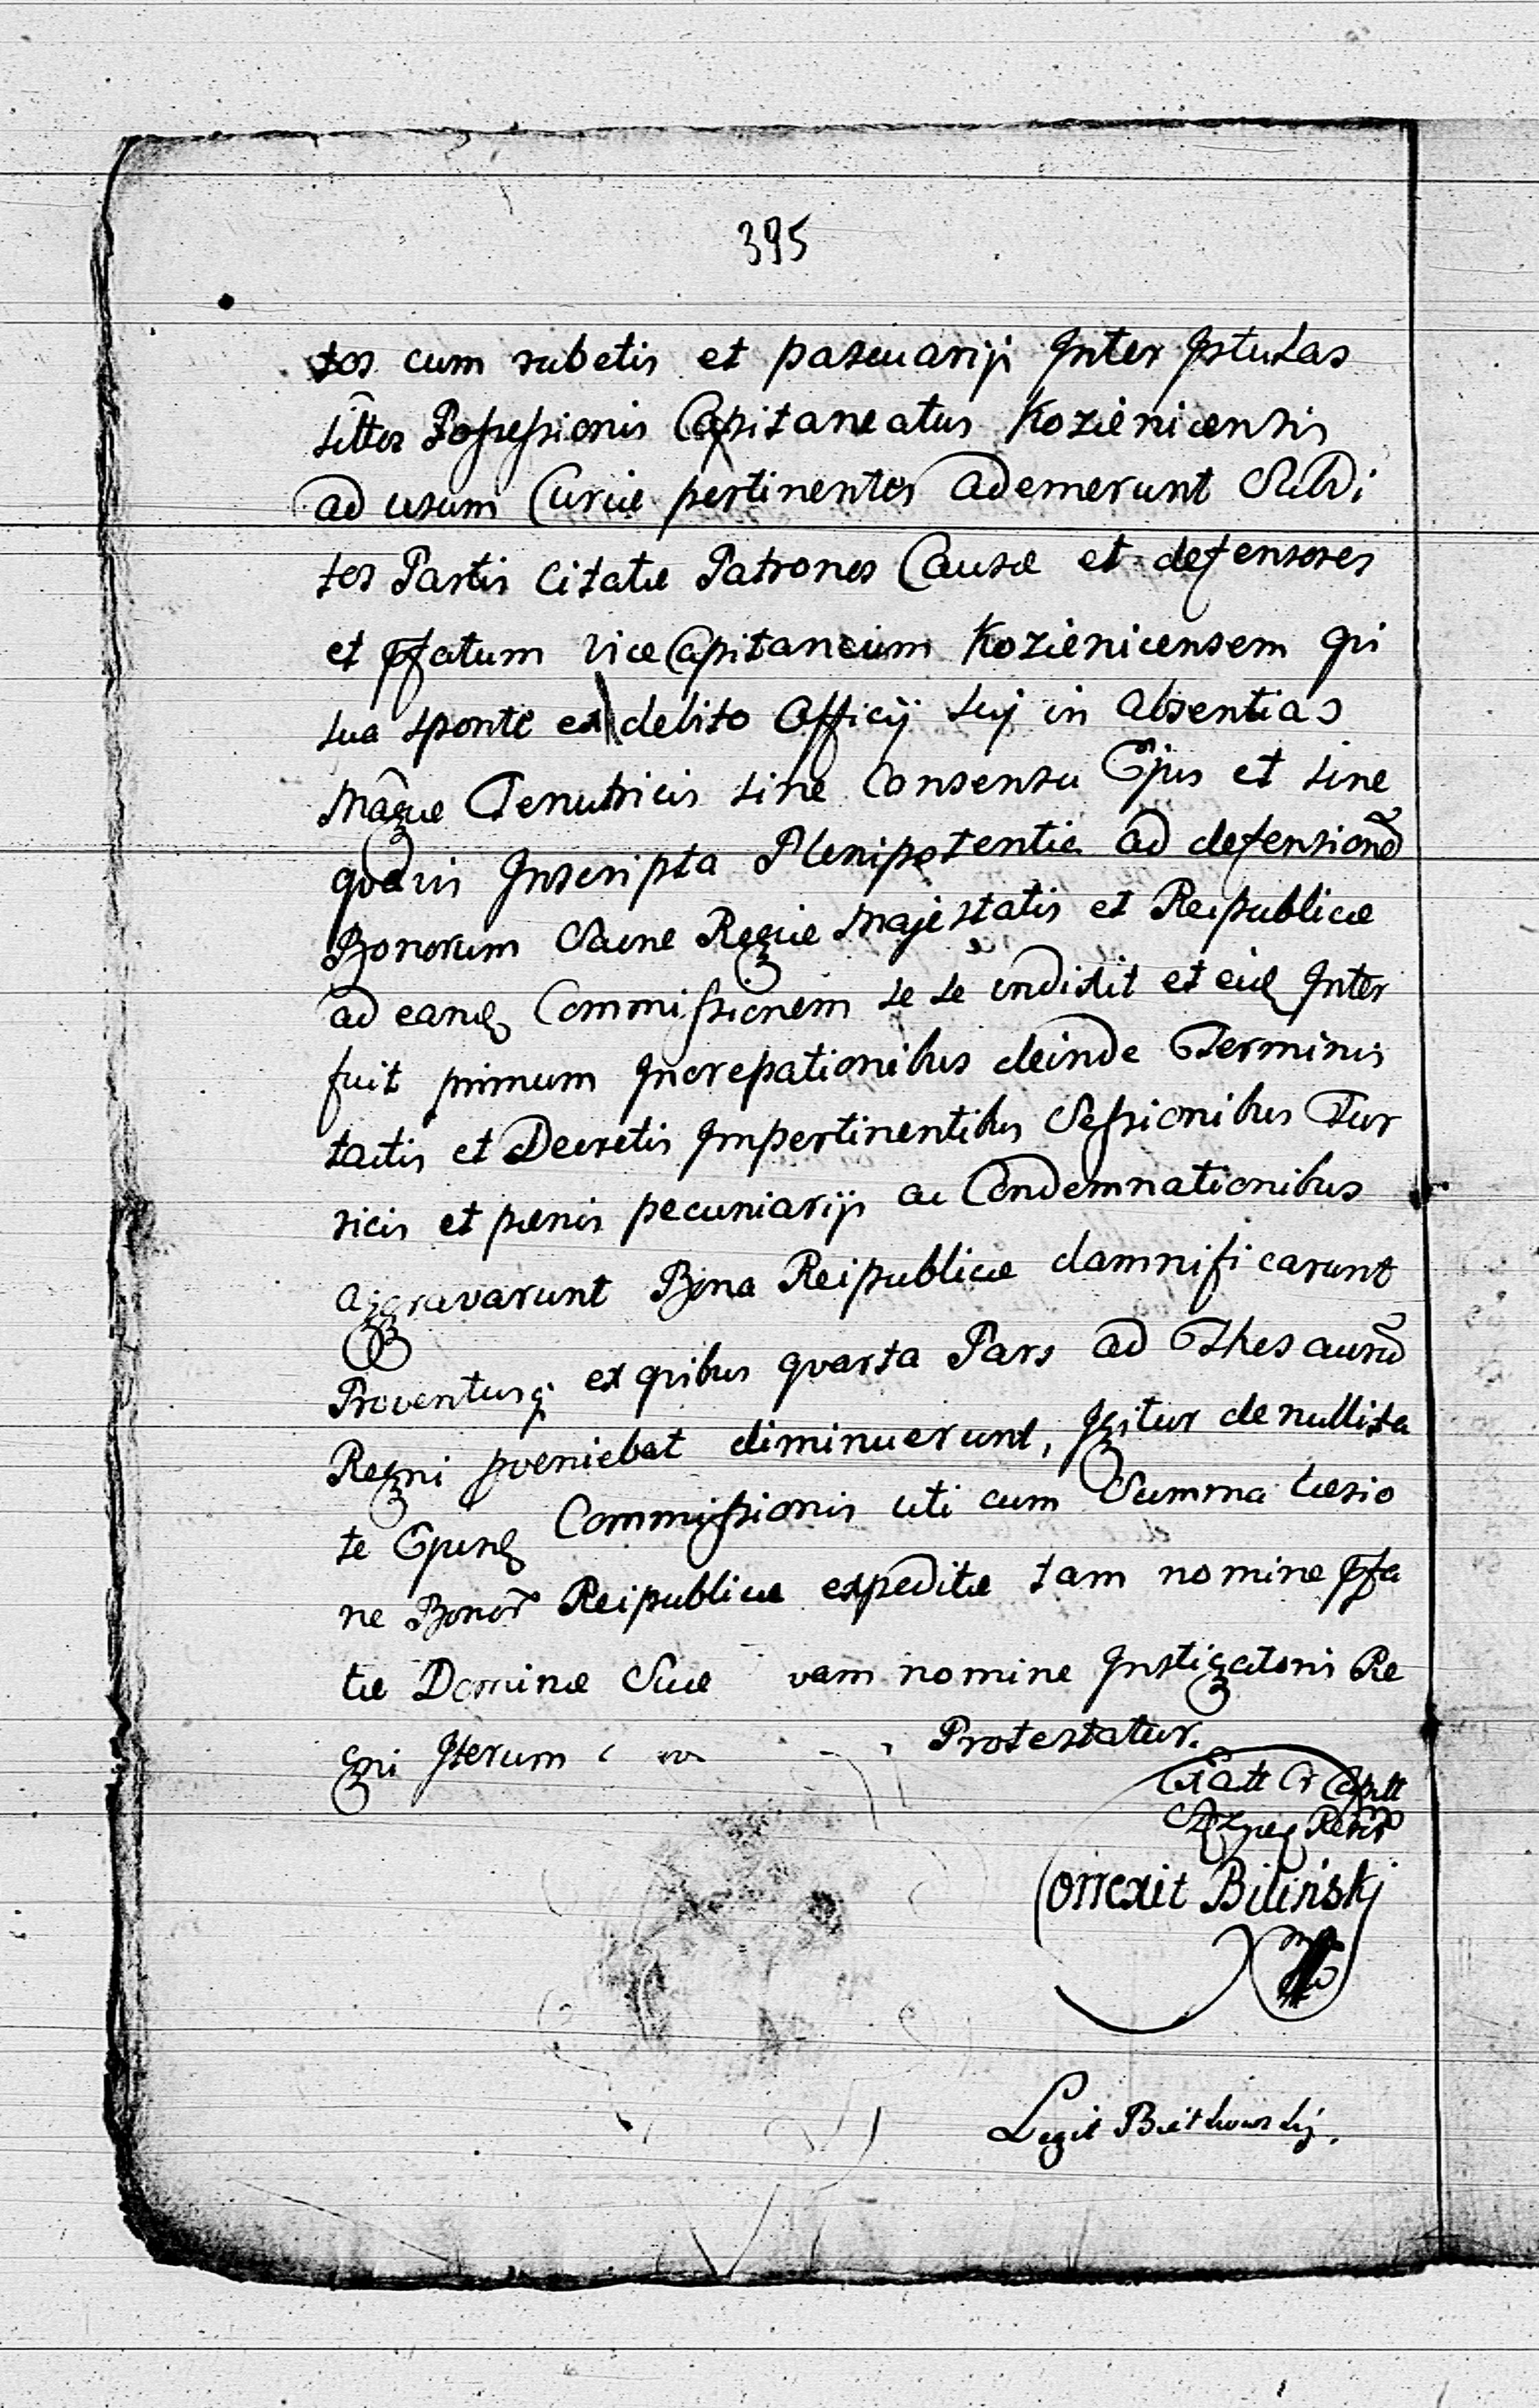 395
tos cum rubetis et pascuarijs Inter Istutas
sitos Possessionis Capitaneatus Kozienicensis
ad usum Curiæ pertinentes ademerunt Subdi
tos Partis Citatæ Patronos Causæ et defensores
et pfatum Vice Capitaneum Kozienicensem qvi
sua sponte ex debito Officij sui in absentia
Magcæ Tenutricis sine Consensu Ejus et sine
qvavis Inscripta Plenipotentia ad defensionē
Bonorum Sacræ Regiæ Majestatis et Reipublicæ
ad eandē Commissionem se se indidit et eid Inter
fuit primum Increpationibus deinde Terminis
tactis et Decretis Impertinentibus Sessionibus Tur
ricis et pænis pecuniarijs ac Condemnationibus
aggravarunt Bona Reipublicæ damnificarunt
Proventusq; ex qvibus qvarta Pars ad Thesaurū
Regni pveniebat diminuerunt, Igitur de nullita
te Ejusd Commissionis uti cum Summa Læsio
ne Bonor Reipublicæ expeditæ tam nomine pfa
tæ Dominæ Suæ nomine Instigatoris Re
gni Iterum Protestatur.
Correxit Biliński
Legit